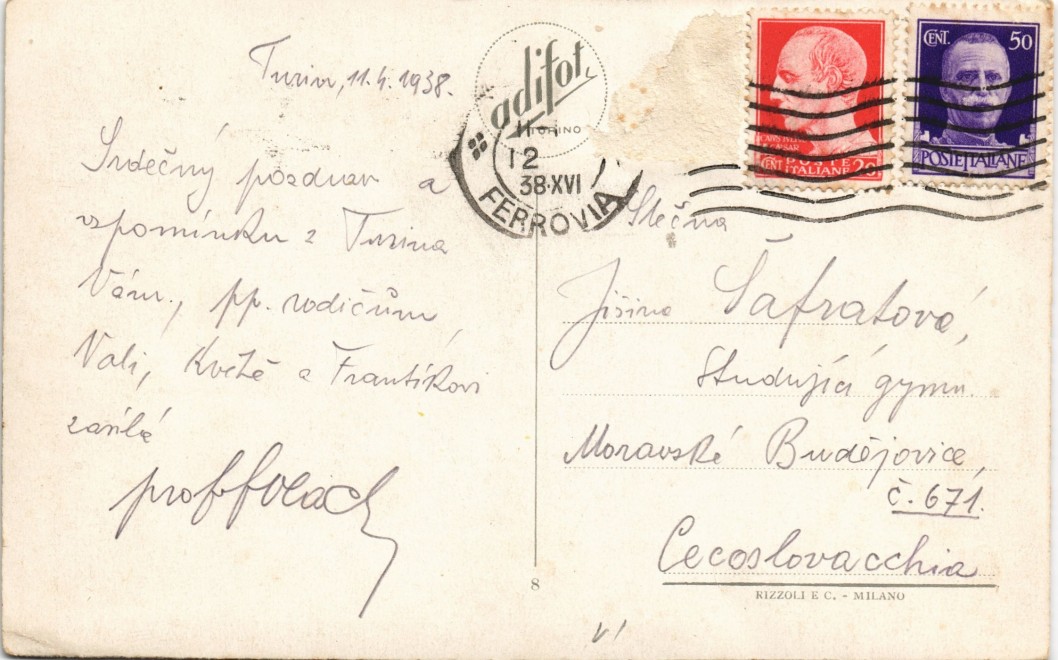 Turin, 11.4.1938.
Srdečný pozdrav a
vzpomínku z Turina
Vám, pp. rodičům,
Vali, Květě a Františkovi
zasílá
prof
adifot
TORINO
12
38·XVI
FERROVIA
CENT. 50
POSTE ITALIANE
CENT 20
POSTE
ITALIANE
Slečna
Jiřina Šafratová,
Studující gymn.
Moravské Budějovice,
č. 671.
Cecoslovacchia
8
RIZZOLI E C. - MILANO